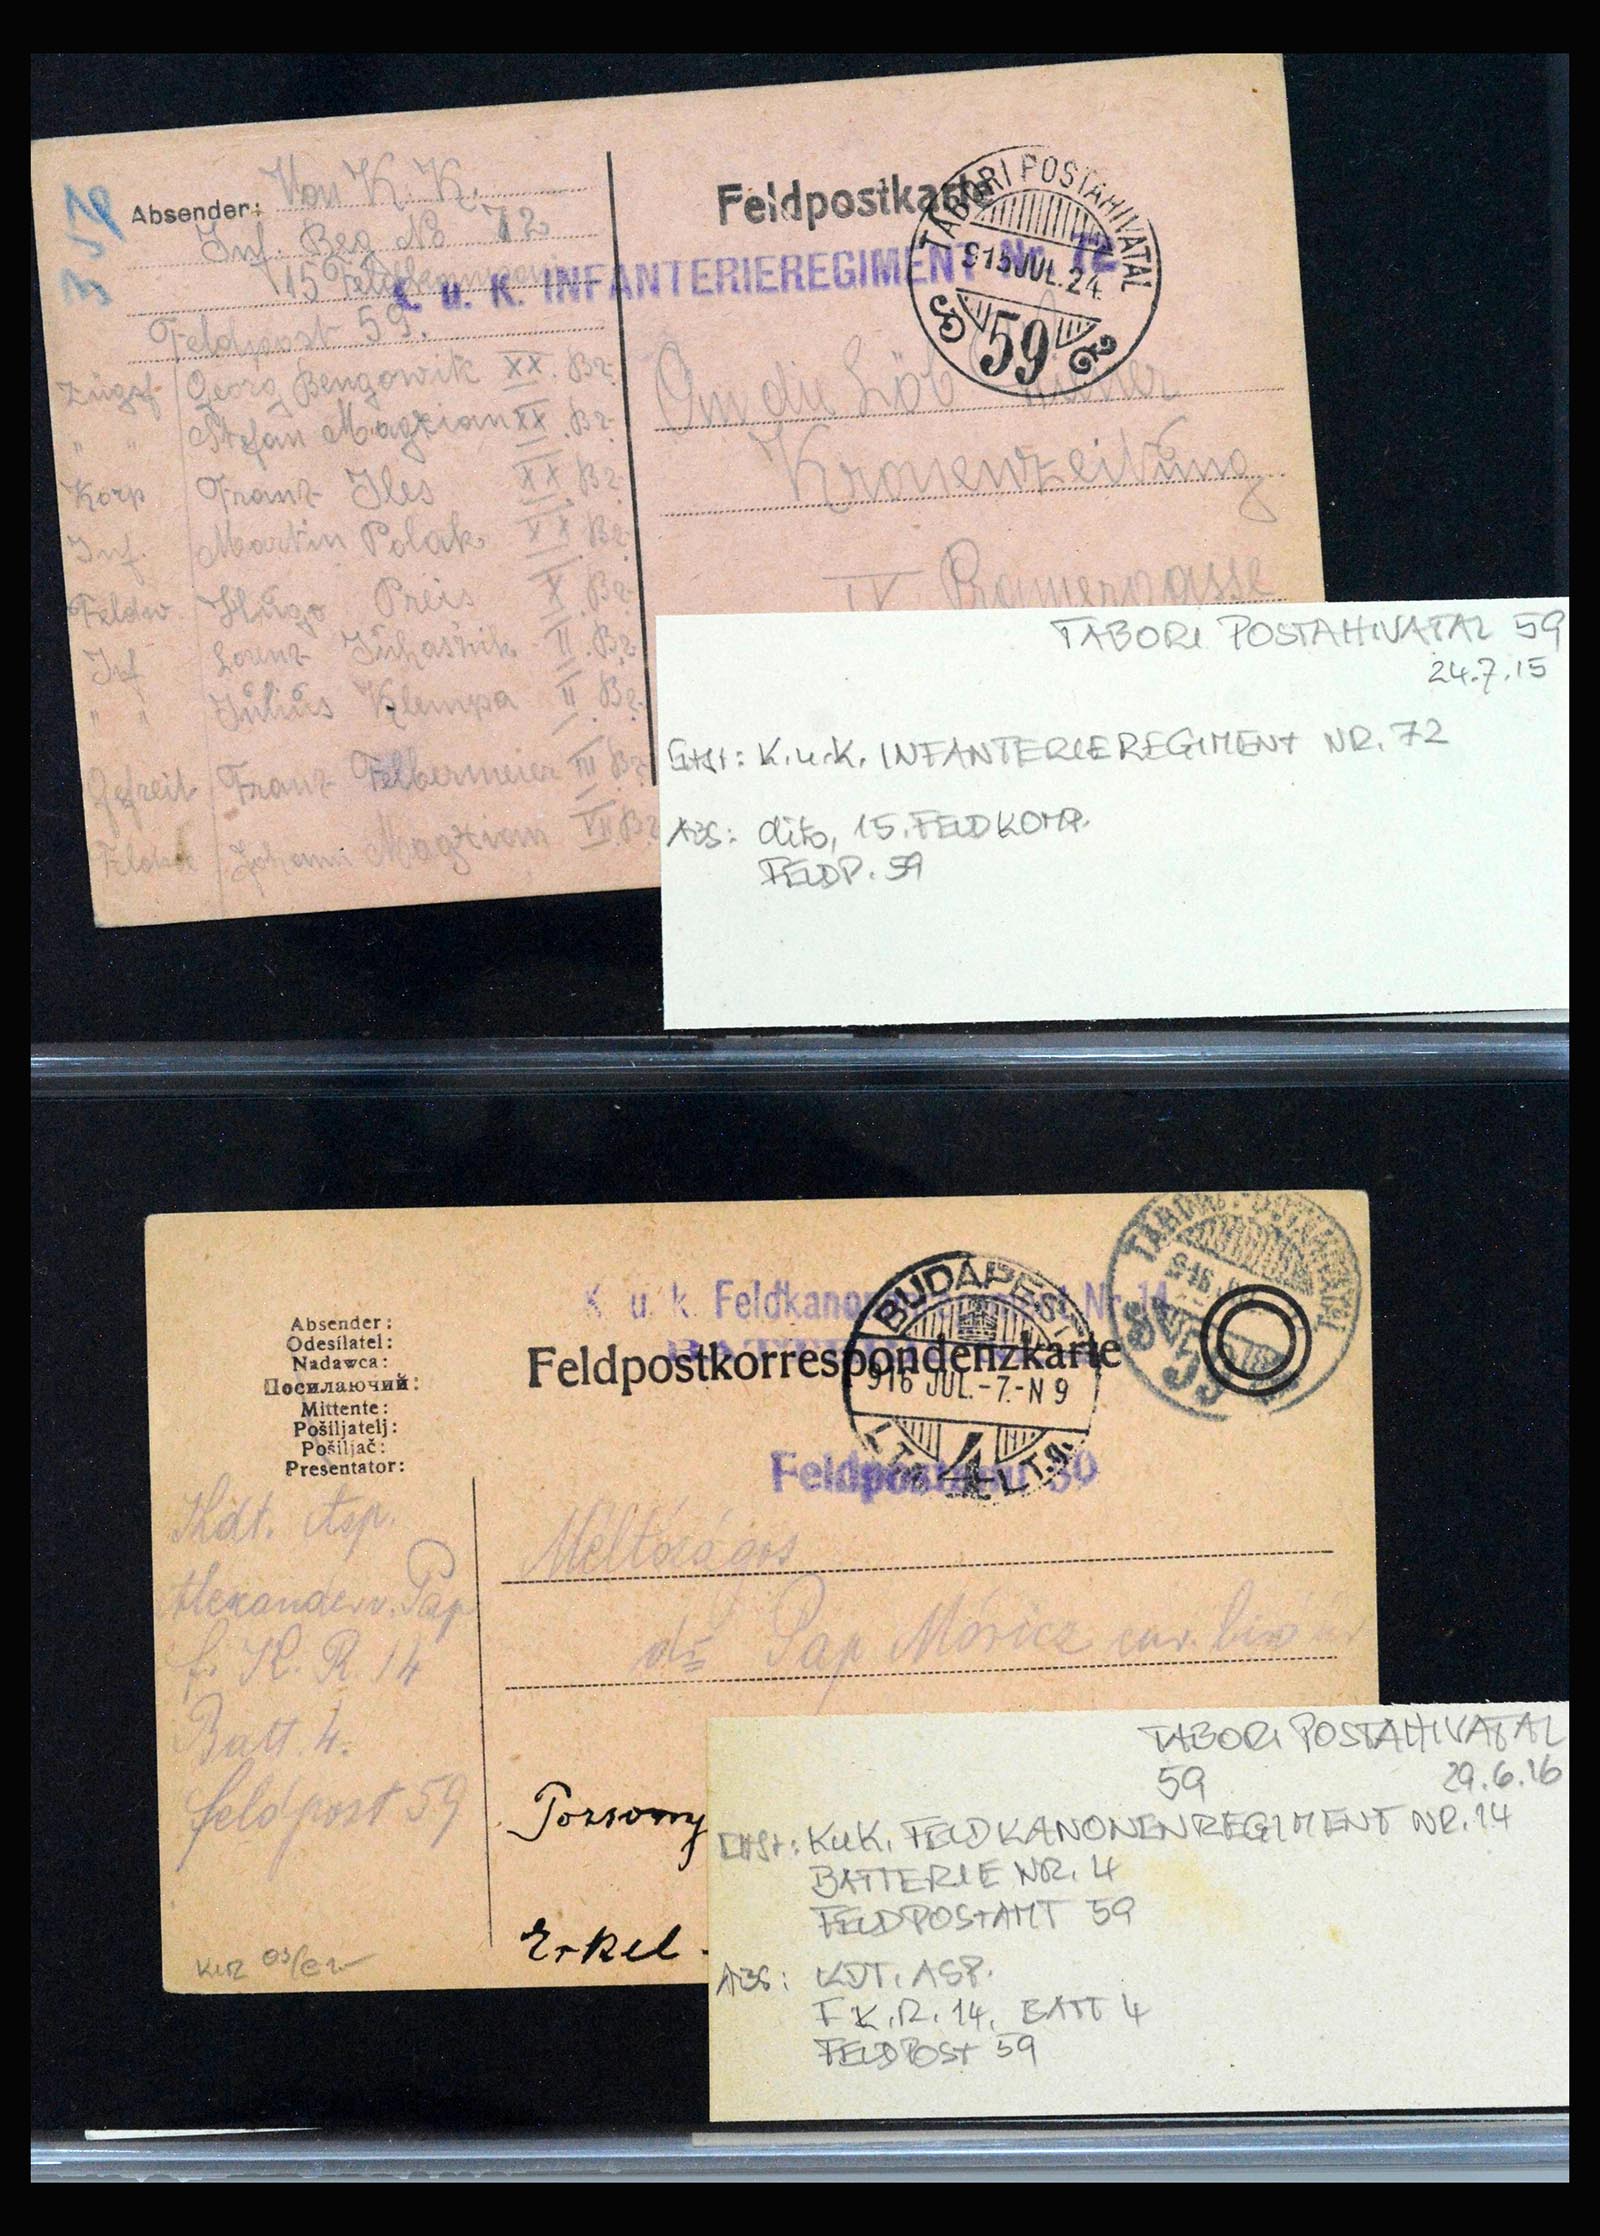 Feldpostkarte
Absender: Von K. K.
Inf. Reg No 72
15 Feldkompanie
Feldpost 59.
K. u. K. INFANTERIEREGIMENT Nr. 72
TÁBORI POSTAHIVATAL
915 JUL. 24.
59
Zugsf Georg Bengowik XX. Br.
" " Stefan Magxian XX. Br.
Korp Franz Iles XX. Br.
Inf. Martin Polak XX. Br.
Feldw. Hugo Preis X. Br.
Inf Lorenz Juhasžik II. Br.
" " Julius Klempa II. Br.
Gefreit Franz Felbermeier III. Br.
Johann Magxian VII. Br.
An die Löb
Kronenzeitung
IX Pramergasse
TABORI POSTAHIVATAL 59
24.7.15
K.u.K. INFANTERIEREGIMENT NR. 72
ABS: dito, 15. FELDKOMP.
FELDP. 59
K. u. k. Feldkanonenregiment Nr. 14
Feldpostkorrespondenzkarte
BUDAPEST
916 JUL.-7.-N 9
4
TÁBORI POSTAHIVATAL
916
59
Feldpostamt 59
Absender:
Odesílatel:
Nadawca:
Посилаючий:
Mittente:
Pošiljatelj:
Pošiljač:
Presentator:
Kdt. Asp.
Alexander v. Pap
f. K. R. 14
Batt. 4.
feldpost 59
Méltóságos
Pap Móricz
Pozsony
Erkel
TABORI POSTAHIVATAL
59 29.6.16
K.u.K. FELDKANONENREGIMENT NR. 14
BATTERIE NR. 4
FELDPOSTAMT 59
ABS: KDT. ASP.
F.K.R. 14, BATT 4
FELDPOST 59